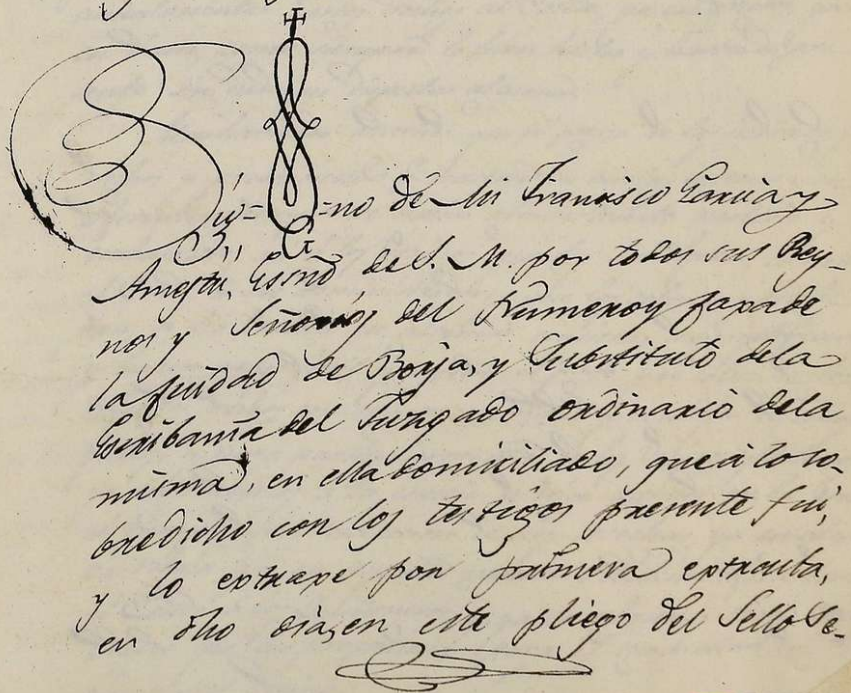 Sig=
=no de Mi Francisco Garcia y
Esno de S. M. por todos sus Rey-
nos y Señorios del Numero y Caxa de
la Ciudad de Borja, y Substituto dela
Escribania del Juzgado ordinario dela
misma, en ella domiciliado, que á lo so-
bredicho con los testigos presente fui,
y lo extraxe por primera extracta,
en dho dia, en este pliego del Sello Se-